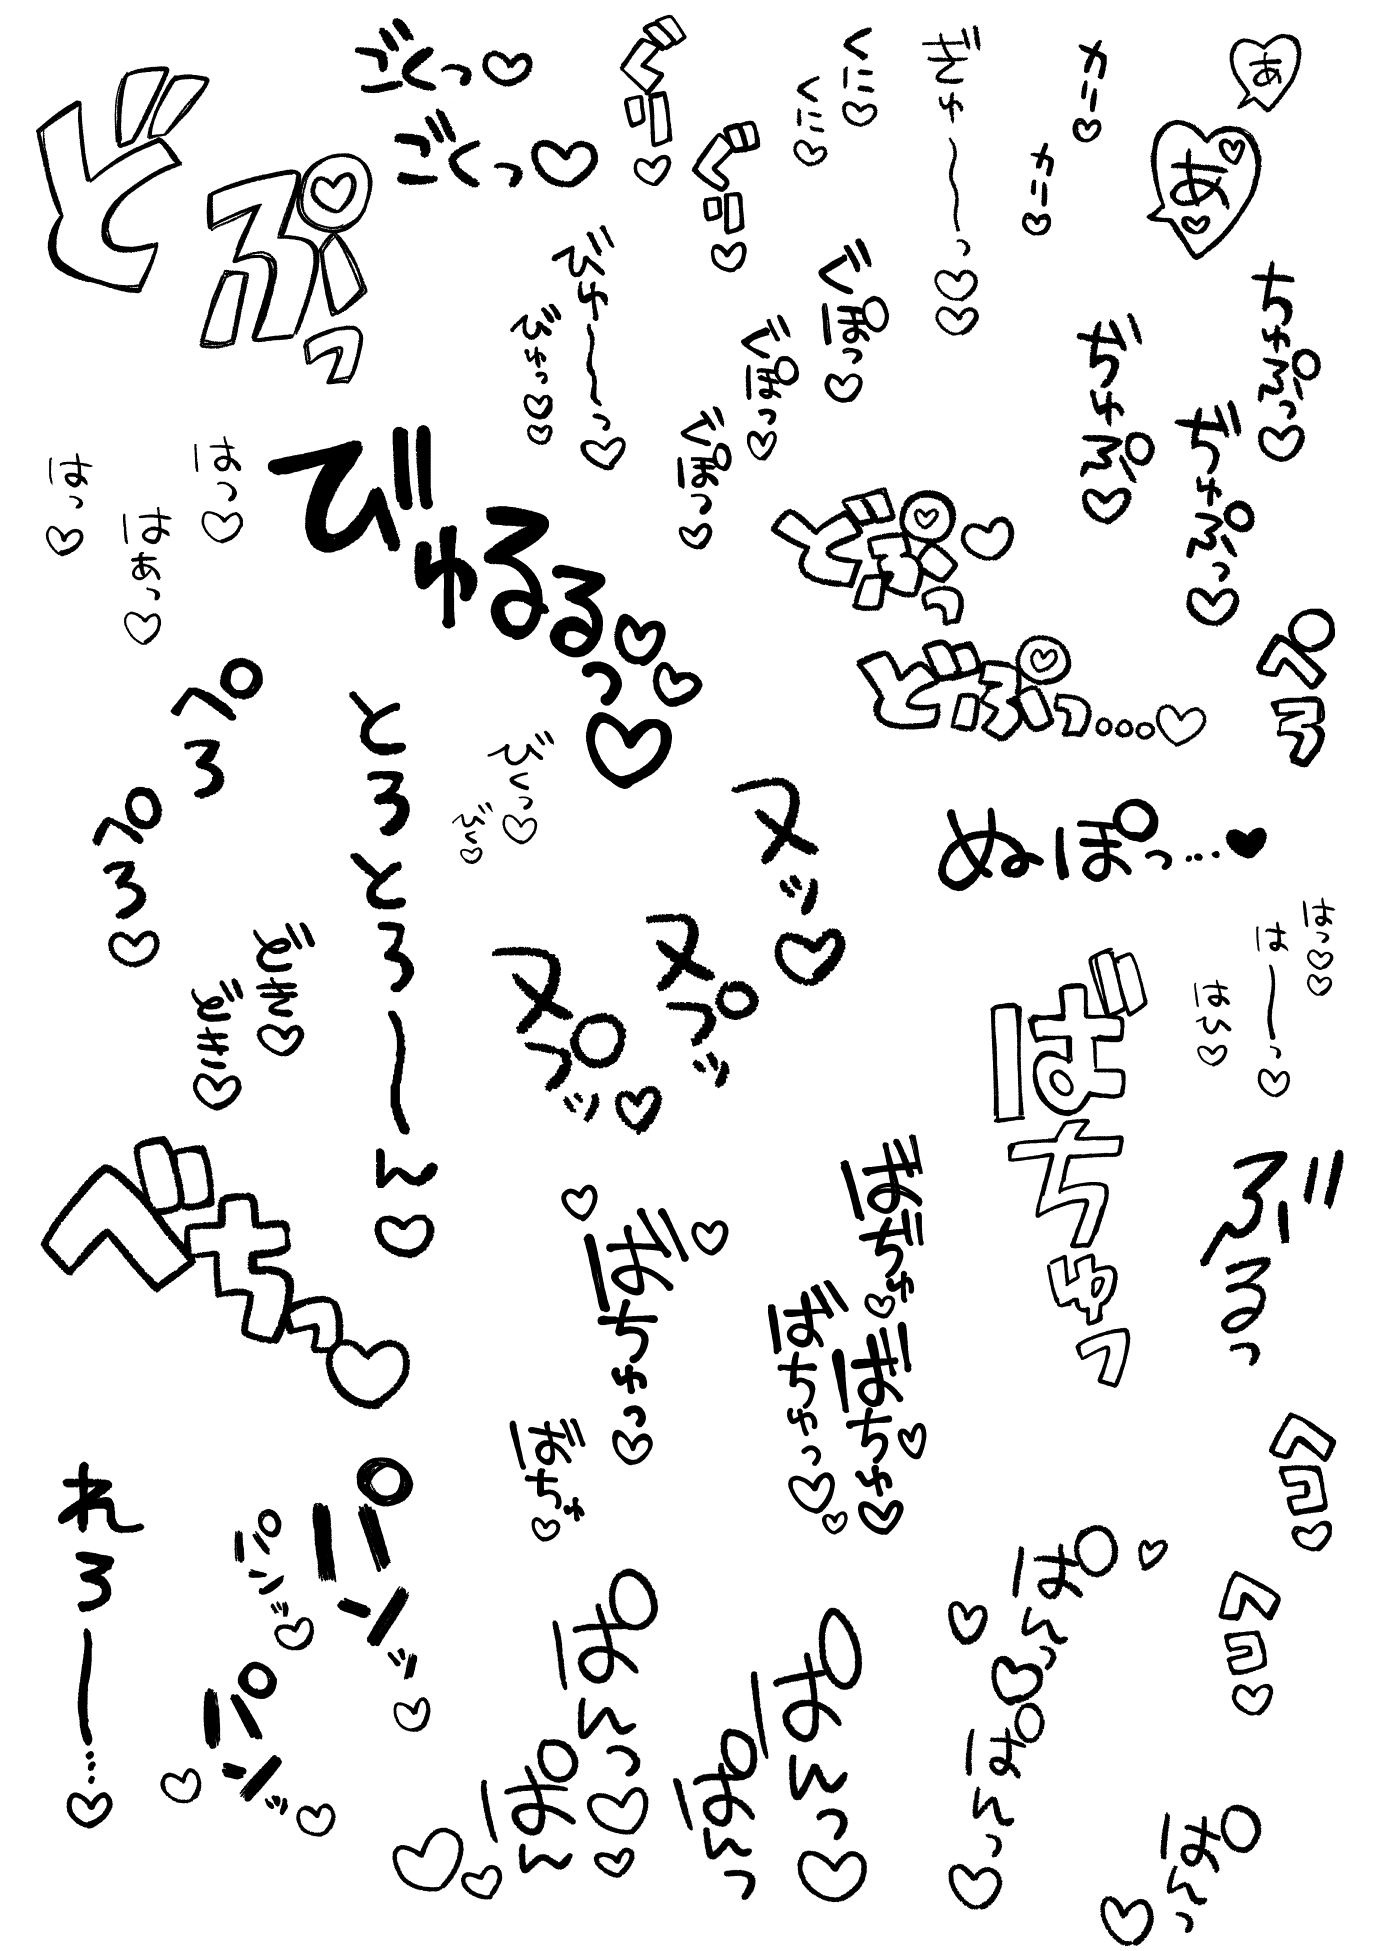 どぷっ
ごくっ♡
ごくっ♡
ぐに♡
ぐに♡
くに♡
くに♡
ぎゅ〜〜っ♡♡
カニ♡
カニ♡
あ
あ♡♡
びゅ〜〜っ♡
びゅっ♡♡
ぐぽっ♡
ぐぽっ♡
ぐぽっ♡
ぢゅぷ♡
ぢゅぷっ♡
ちゅぷっ♡
はっ♡
はぁっ♡
はっ♡
びゅるるっ♡♡♡
どぷっ♡
どぷっ…♡
ぺろ
ぺろ
ぺろ♡
とろとろ〜ん♡
びくっ♡
びく♡
ヌッ♡
ヌプッ
ヌプッ♡
ぬぽっ…♥
どき♡
どき♡
ばちゅっ
はっ♡♡
は〜っ♡
はぅ♡
べちっ♡
♡ばちゅっ♡♡
ばちゅ♡
ばちゅ♡
ばちゅっ♡♡
ばちゅ♡♡
ぶるっ
れろ〜…♡
パンッ♡
パンッ♡
パンッ♡♡
ぱんっ♡♡
ぱん♡♡
ぱんっ♡
ぱんっ
ぱんっ♡♡♡
ぱんっ♡
ぱんっ♡
クコ♡
クコ♡